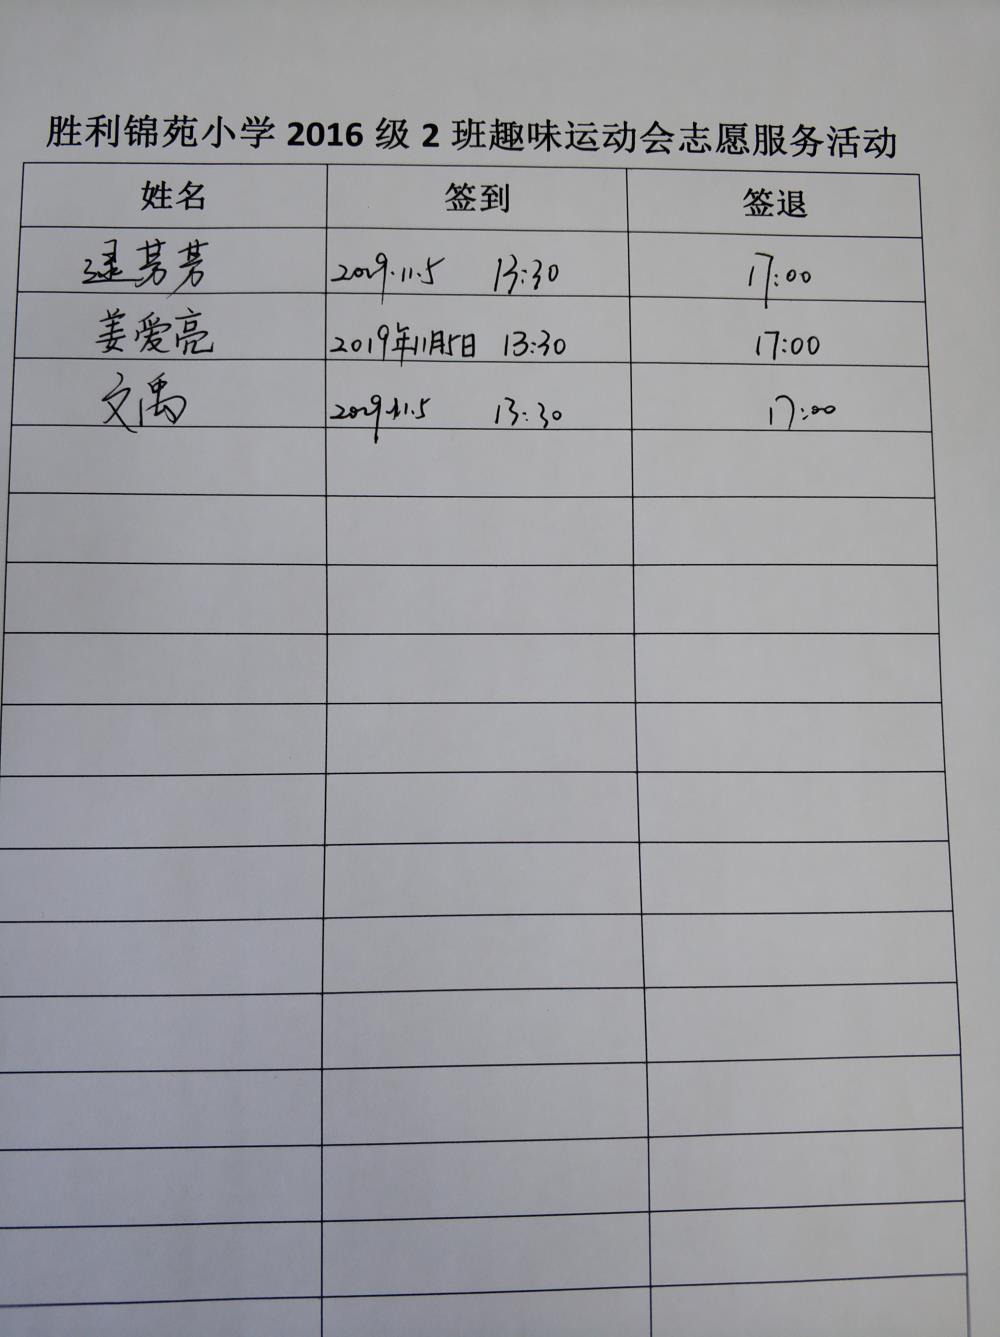 胜利锦苑小学 2016 级 2 班趣味运动会志愿服务活动
姓名 签到 签退
逯芳芳 2019.11.5 13:30 17:00
姜爱亮 2019年11月5日 13:30 17:00
文禹 2019.11.5 13:30 17:00